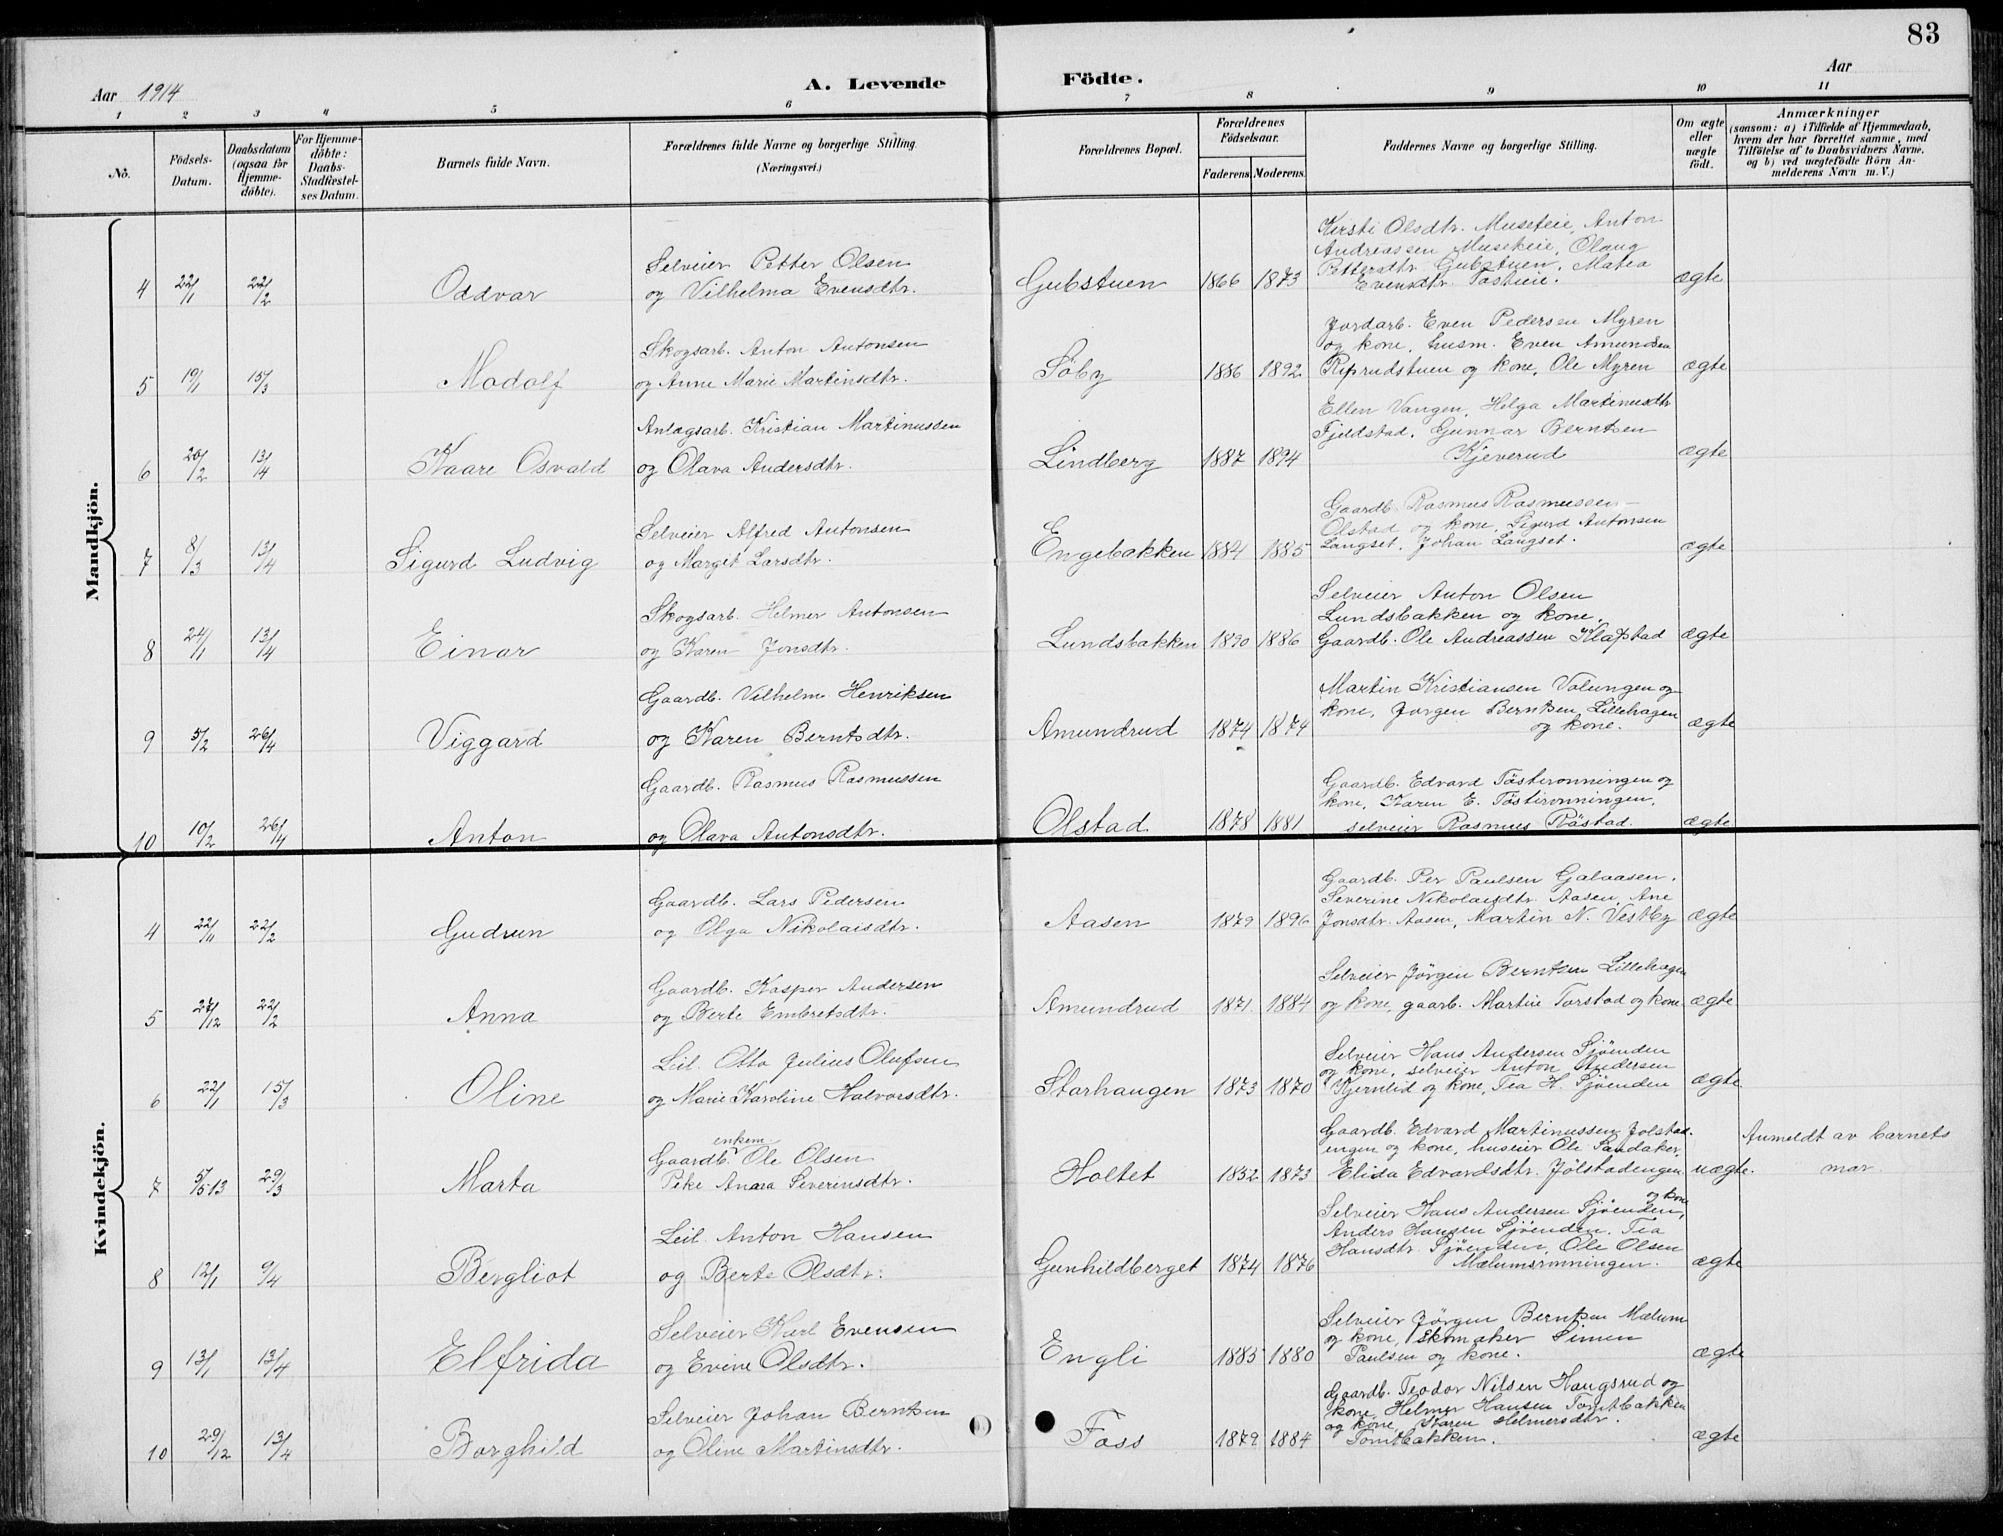 83
Aar 1914
A. Levende Födte.
Aar
1 2 3 4 5 6 7 8 9 10 11
No.
Födsels-Datum.
Daabsdatum (ogsaa for Hjemmedöbte).
For Hjemmedöbte: Daabs-Stadfestelses Datum.
Barnets fulde Navn.
Forældrenes fulde Navne og borgerlige Stilling (Næringsvei.)
Forældrenes Bopæl.
Forældrenes Födselsaar.
Faderens. Moderens.
Faddernes Navne og borgerlige Stilling.
Om ægte eller uægte født.
Anmærkninger
(saasom: a) i Tilfælde af Hjemmedaab, hvem der har forrettet samme, med Tilföielse af to Daabsvidners Navne, og b) ved uægtefödte Börn Anmelderens Navn m. V.)
Mandkjön.
Kirsti Olsdtr. Museteie, Anton
Andreassen Musekeie, Olaug
Selveier Petter Olsen
Pettersdtr Gubstuen, Matea
4 22/1 22/2 Oddvar og Vilhelma Evensdtr. Gubstuen 1866 1873 Evensdtr. ægte
Jordarb. Even Pedersen Myren
Skogsarb. Anton Antonsen
og kone, husm. Even Amundsen
5 19/1 15/3 Modolf og Anne Marie Martinsdtr. Söby 1886 1892 Riprudstuen og kone, Ole Myren ægte
Ellen Vangen, Helga Martinusdtr
Anlægsarb. Kristian Martinussen
Fjeldstad, Gunnar Berntsen
6 20/2 13/4 Kaare Osvald og Olava Andersdtr. Lindberg 1887 1894 Kjeverud ægte
Gaardb. Rasmus Rasmussen
Selveier Alfred Antonsen
Olstad og kone, Sigurd Antonsen
7 8/3 13/4 Sigurd Ludvig og Margit Larsdtr. Engebakken 1884 1885 Langset, Johan Langset. ægte
Selveier Anton Olsen
Skogsarb. Helmer Antonsen
Lundsbakken og kone,
8 24/1 13/4 Einar og Karen Jonsdtr. Lundsbakken 1890 1886 Gaardb. Ole Andreassen Klapstad ægte
Martin Kristiansen Volungen og
Gaardb. Vilhelm Henriksen
kone, Jørgen Berntsen, Lillehagen
9 5/2 26/4 Viggard og Karen Berntsdtr. Amundrud 1874 1874 og kone. ægte
Gaardb. Edvard Töstirønningen og
Gaardb. Rasmus Rasmussen
kone, Karen E. Töstirønningen,
10 10/2 26/4 Anton og Olava Antonsdtr. Olstad 1878 1881 selveier Rasmus Röstad. ægte
Kvindekjön.
Gaardb. Per Paulsen Galaasen,
Gaardb. Lars Pedersen
Severine Nikolaisdtr. Aasen, Ane
4 22/11 22/2 Gudrun og Olga Nikolaisdtr. Aasen 1879 1896 Jonsdtr. Aasen, Martin N. Vestby ægte
Gaardb. Kasper Andersen
Selveier Jørgen Berntsen Lillehagen
5 27/12 22/2 Anna og Berte Embretsdtr. Amundrud 1871. 1884 og kone, gaarb. Martin Torstad og kone. ægte
Selveier Hans Andersen Sjøenden
Leil. Otto Julius Olufsen
og kone, selveier Anton Andersen
6 22/1 15/3 Oline og Marie Karoline Halvorsdtr. Storhaugen 1873 1870 Kjernlid og kone, Tea H. Sjøenden ægte
Gaardb. Edvard Martinussen Jolstad-
enkem.
Gaardb. Ole Olsen
engen og kone, huseier Ole Sandaker,
Anmeldt av barnets
7 5/5 13 29/3 Marta Pike Anna Severinsdtr. Holtet 1852 1873 Elida Edvardsdtr. Jølstadengen uægte. mor.
og kone
Selveier Hans Andersen Sjøenden,
Leil. Anton Hansen
Anders Hansen Sjøenden, Tea
Hansdtr. Sjøenden, Ole Olsen
8 12/1 9/4 Bergliot og Berte Olsdtr. Gunhildberget 1874 1876 Mælumsrønningen. ægte
Selveier Jørgen Berntsen Mælum
Selveier Karl Evensen
og kone, skomaker Simen
9 13/1 13/4 Elfrida og Evine Olsdtr. Engli 1885 1880 Paulsen og kone. ægte
Gaardb. Teodor Nilsen Haugsrud og
Selveier Johan Berntsen
kone, Helmer Hansen Tomtbakken
og kone, Karen Helmersdtr.
10 29/12 13/4 Borghild og Oline Martinsdtr. Foss 1879 1884 Tomtbakken. ægte